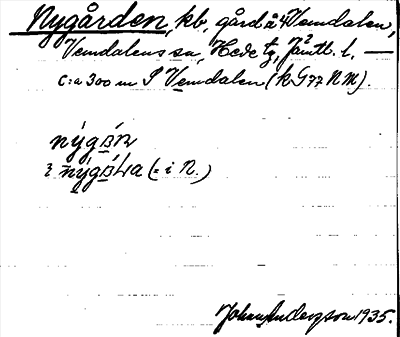 Nygården, kb, gård å 4 Vemdalen,
Vemdalens sn, Hede tg, Jämtl. l. —
c:a 300 m S Vemdalen (kG77 NM).
nýgǻn
i nýgǻLa (= i N.)
Johan Anderson 1935.